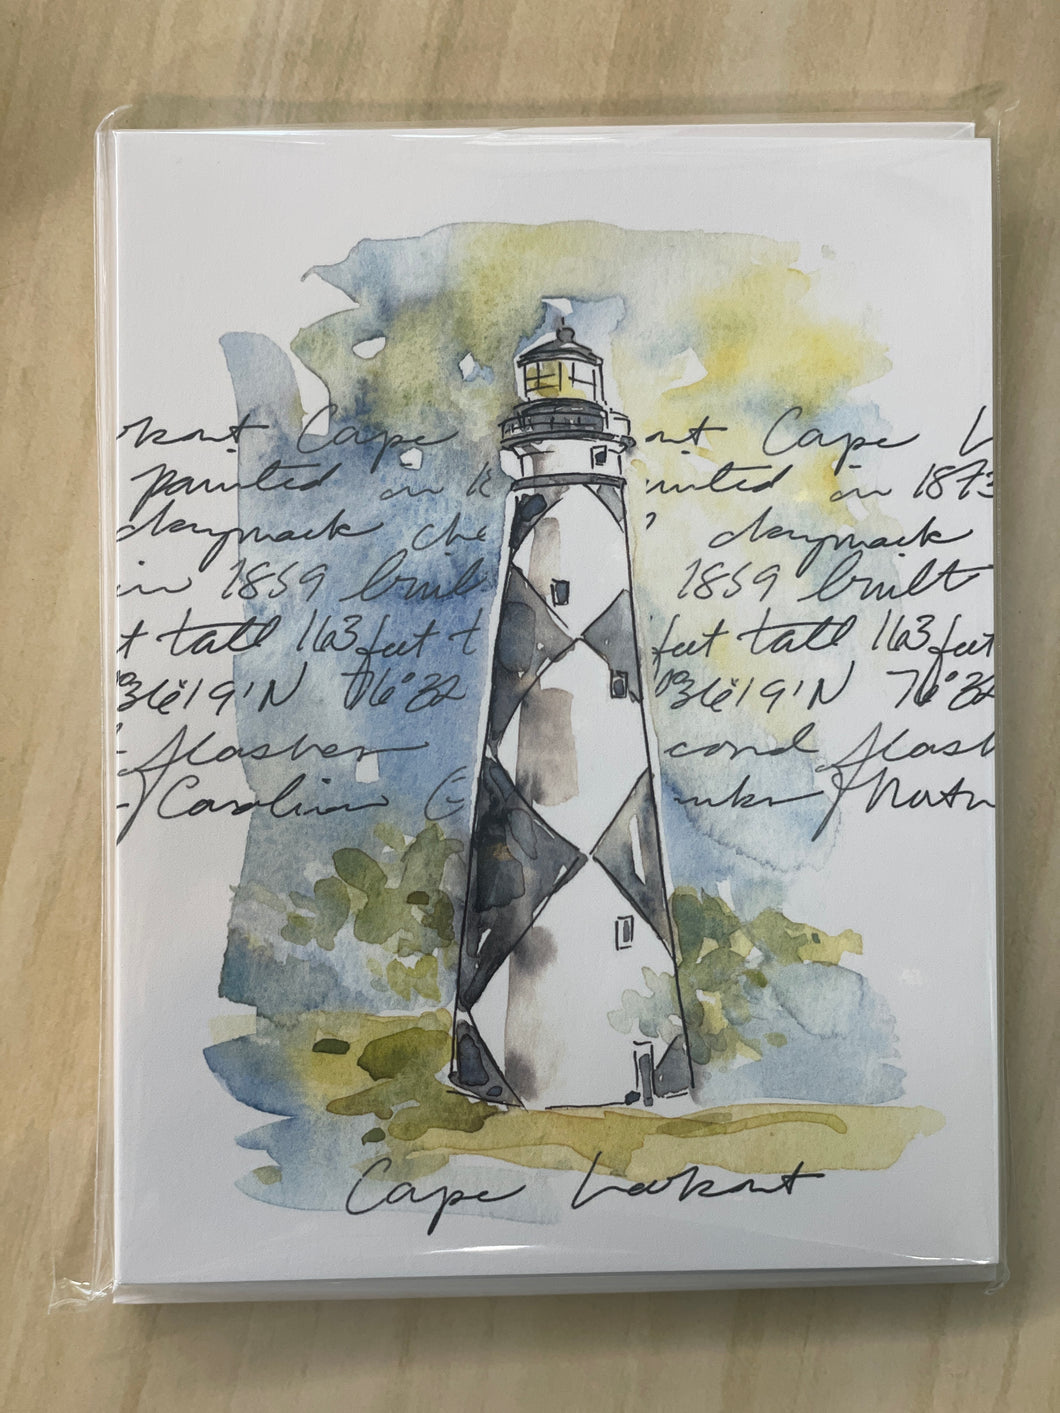 okout Cape out Cape L
painted in 18 inted in 1873
daymark che daymark
in 1859 built 1859 built
t tall 163 feet t feet tall 163 feet
°36'19'N 76°32 °36'19'N 76°32
flasher cond flash
Carolina anks North
Cape Lookout